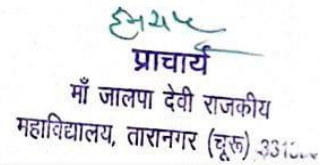 प्राचार्य
माँ जालपा देवी राजकीय
महाविद्यालय, तारानगर (चूरू)